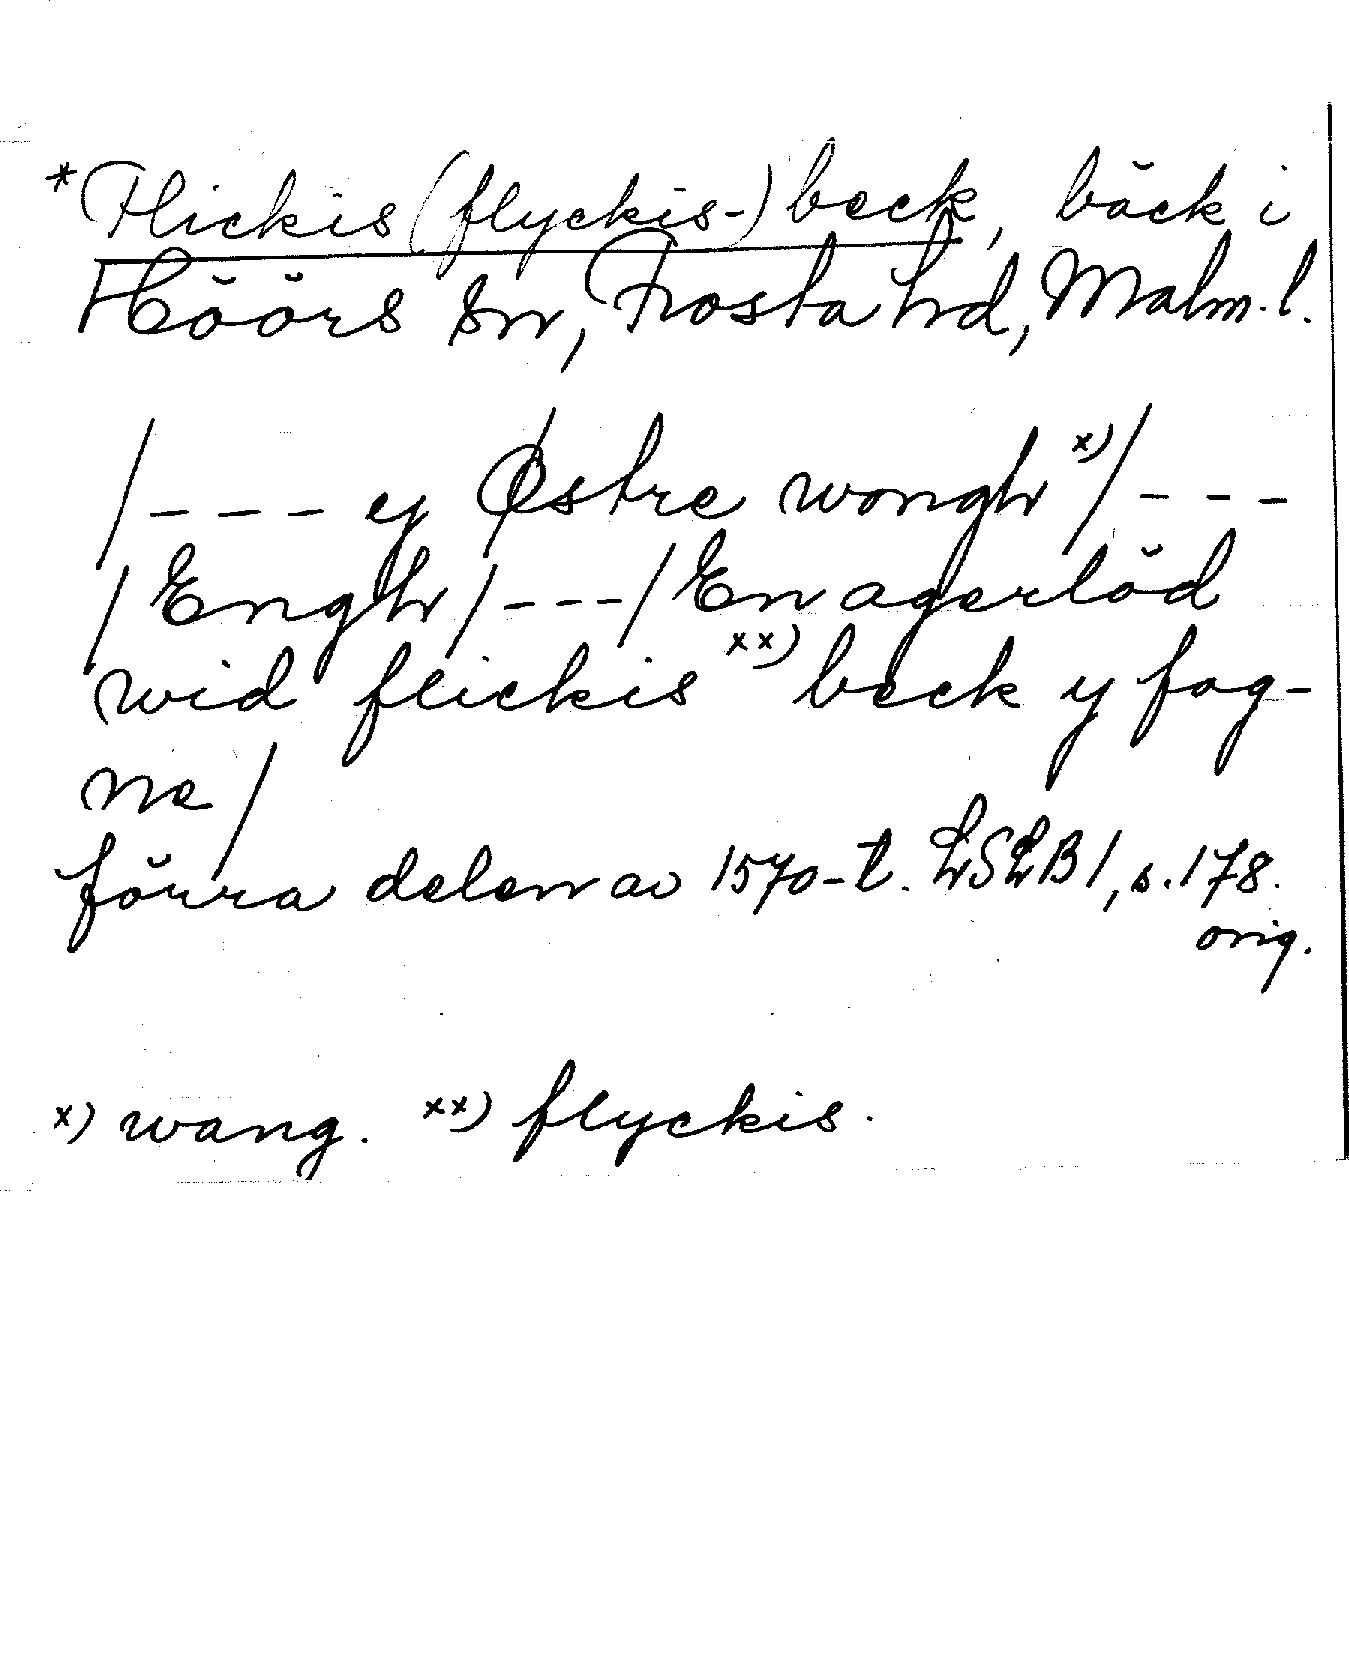 *Flickis (flyckis-) beck, bäck i
Höörs sn, Frosta hd, Malm. l.
/--- ey Østre wongh x)/---
/Engh/---/En agerlöd
wid flickis xx) beck y fog-
ne/
förra delen av 1570-t. LSLB 1, s. 178.
orig.
x) wang. xx) flyckis.